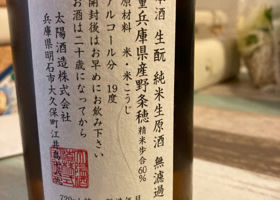 本酒 生酛 純米生原酒 無濾過
兵庫県産野条穂 精米歩合60%
原材料 米・米こうじ
アルコール分 19度
開封後はお早めにお飲み下さい
お酒は二十歳になってから
太陽酒造株式会社
兵庫県明石市大久保町江井
720